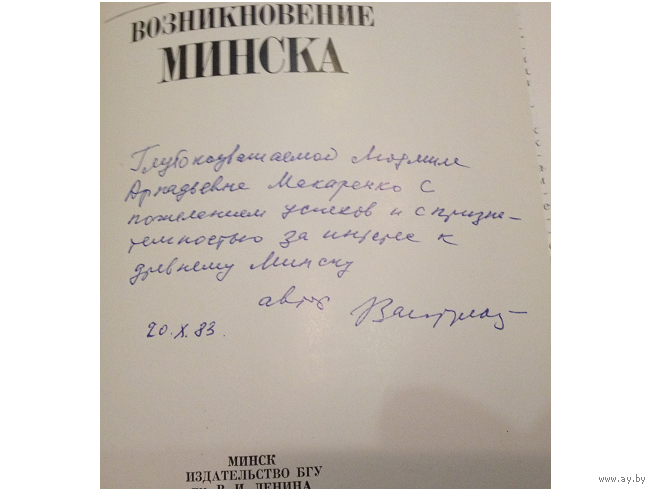 ВОЗНИКНОВЕНИЕ
МИНСКА
Глубокоуважаемой Людмиле
Аркадьевне Макаренко с
пожеланием успехов и с призна-
тельностью за интерес к
древнему Минску
автор
20.X.83.
МИНСК
ИЗДАТЕЛЬСТВО БГУ
В. И. ЛЕНИНА
www.ay.by